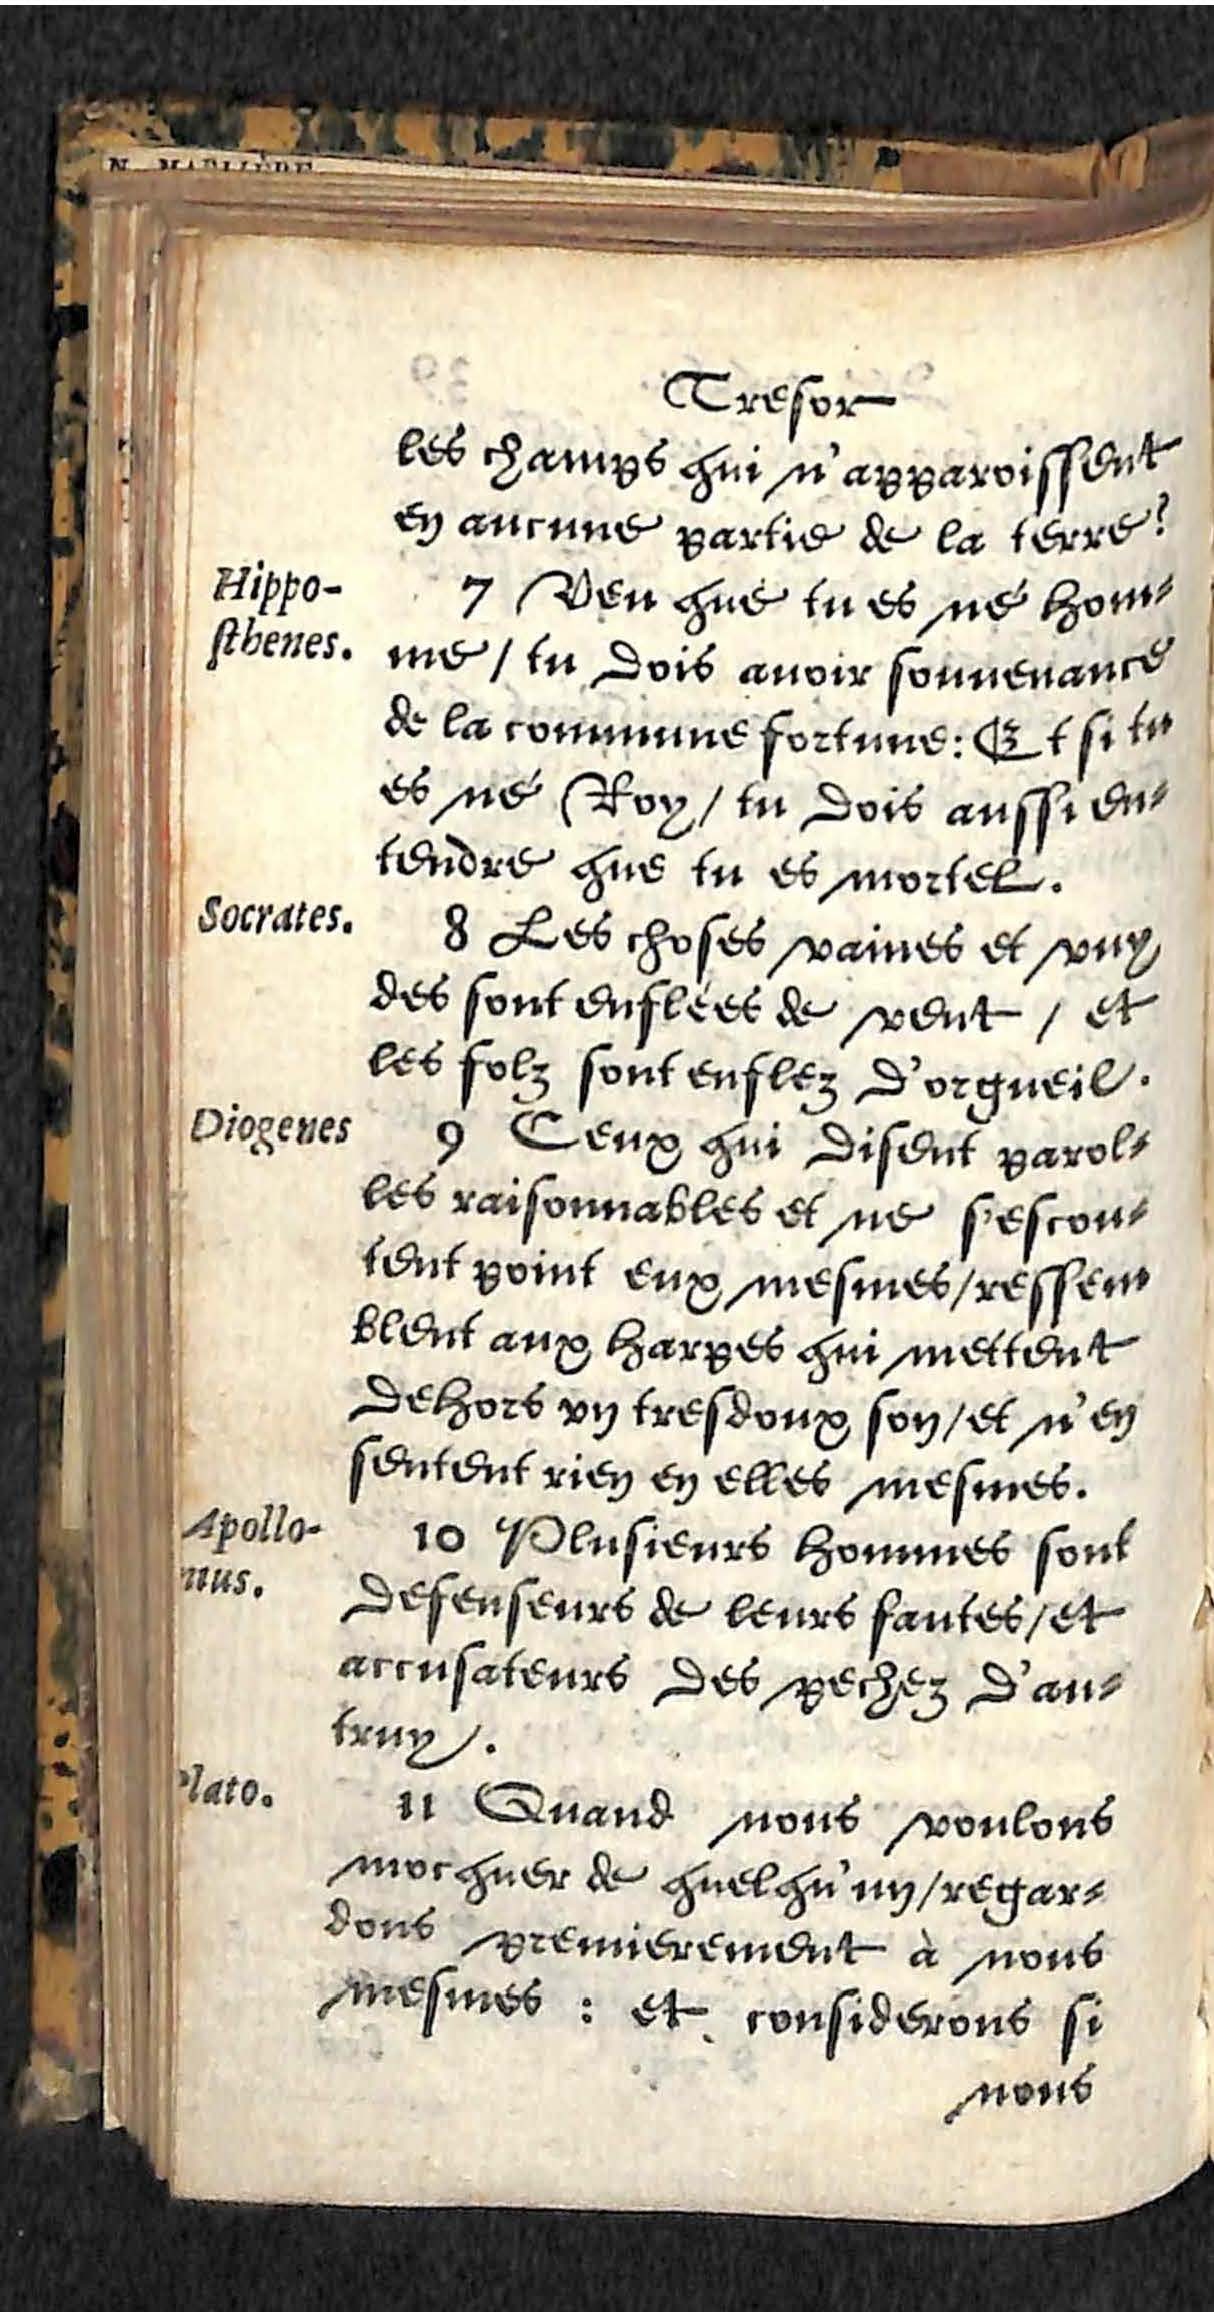 Tresor
les champs qui n'apparoissent
en aucune partie de la terre?
Hippo-
sthenes.
7 Veu que tu es né hom-
me / tu dois auoir souuenance
de la commune fortune: Et si tu
es né Roy / tu dois aussi en-
tendre que tu es mortel.
Socrates.
8 Les choses vaines et vuy
des sont enflées de vent / et
les folz sont enflez d'orgueil.
Diogenes
9 Ceux qui disent parol-
les raisonnables et ne s'escou-
tent point eux mesmes / ressem
blent aux harpes qui mettent
dehors vn tresdoux son / et n'en
sentent rien en elles mesmes.
Apollo-
nius.
10 Plusieurs hommes sont
defenseurs de leurs fautes / et
accusateurs des pechez d'au-
truy.
Plato.
11 Quand nous voulons
mocquer de quelqu'un / regar-
dons premierement à nous
mesmes : et considerons si
nous